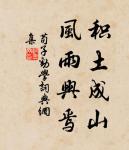 积土成山
風雨興焉
荀子勸學詞典網
集